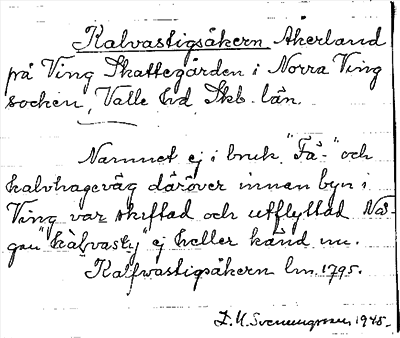 Kalvastigsåkern Åkerland
på Ving Skattegården i Norra Ving
socken, Valle hd Skb. län.
Namnet ej i bruk. "Fä-" och
kalvhageväg däröver innan byn i
Ving var skiftad och utflyttad Nå-
gon "kàlvasty" ej heller känd nu.
Kalfvastigsåkern lm. 1795.
D. A. Svenungsson, 1945.